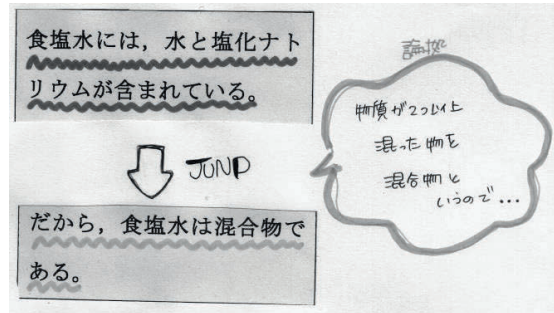 食塩水には，水と塩化ナト
リウムが含まれている。
JUNP
だから，食塩水は混合物で
ある。
論拠
物質が2つ以上
混った物を
混合物と
いうので…